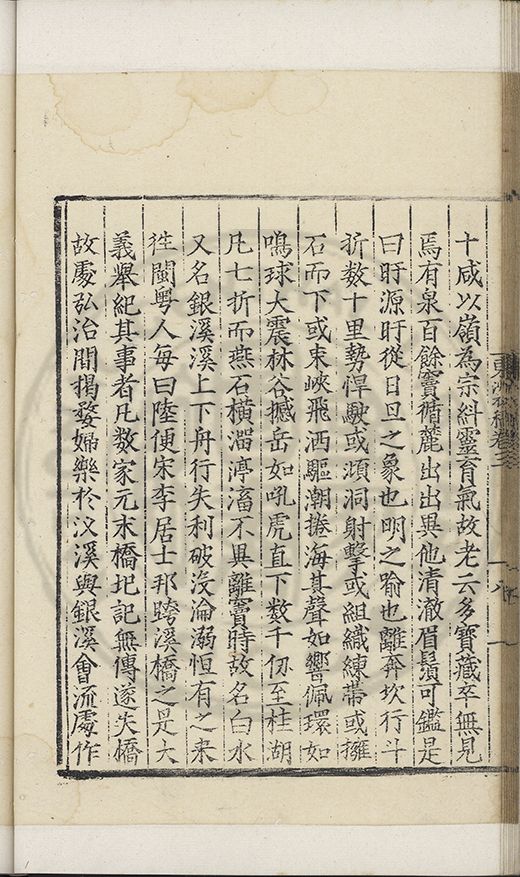 十咸以嶺為宗糾靈育氣故老云多寶藏卒無見
焉有泉百餘竇循麓出出異他清澈眉鬚可鑑是
曰盱源盱從日旦之象也明之喻也離奔坎行斗
折数十里勢悍駛或澒洞射擊或組織練帶或擁
石而下或束峽飛洒驅潮捲海其聲如響佩環如
鳴球大震林谷撼岳如吼虎直下数千仞至桂湖
凡七折而燕石橫溜渟滀不異離竇時故名白水
又名銀溪溪上下舟行失利破沒淪溺恒有之来
徃閩粤人每曰陸便宋李居士邦跨溪橋之是大
義舉紀其事者凡数家元末橋圮記無傳遂失橋
故處弘治間揭婺婦樂於汶溪與銀溪會流處作